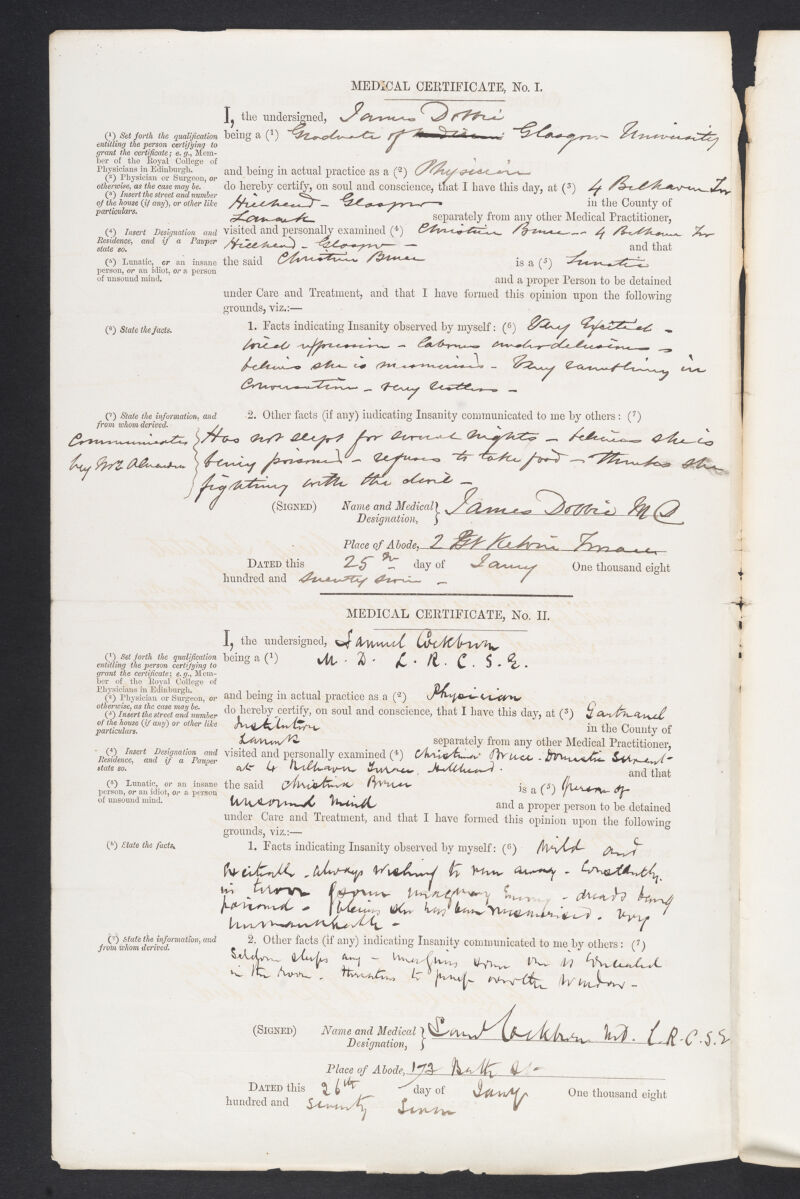 MEDICAL CERTIFICATE, No. I.
I, the undersigned, James Dobbie
(¹) Set forth the qualification entitling the person certifying to grant the certificate; e.g., Member of the Royal College of Physicians in Edinburgh.
being a (¹) Graduate of Glasgow University
(²) Physician or Surgeon, or otherwise, as the case may be.
and being in actual practice as a (²) Physician
(³) Insert the street and number of the house (if any), or other like particulars.
do hereby certify, on soul and conscience, that I have this day, at (³) 4 Belhaven Ter
Hillhead - Glasgow in the County of
Lanark separately from any other Medical Practitioner,
(⁴) Insert Designation and Residence, and if a Pauper state so.
visited and personally examined (⁴) Christina Bruce - 4 Belhaven Ter
Hillhead - Glasgow - and that
(⁵) Lunatic, or an insane person, or an idiot, or a person of unsound mind.
the said Christina Bruce is a (⁵) Lunatic
and a proper Person to be detained
under Care and Treatment, and that I have formed this opinion upon the following
grounds, viz.:—
(⁶) State the facts.
1. Facts indicating Insanity observed by myself: (⁶) Very Excited -
wild expression - labours under delusions -
believes she is mesmerised - Very rambling in
Conversation - very restless -
(⁷) State the information, and from whom derived.
2. Other facts (if any) indicating Insanity communicated to me by others: (⁷)
Communicated by Mrs
Has not slept for several nights - believes she is
being poisoned - refuses to take food - thinks she
fighting with the devil -
(SIGNED) Name and Medical Designation, James Dobbie M D
Place of Abode, 2 Kelvin Terrace
DATED this 25th day of Jany One thousand eight
hundred and seventy seven -
MEDICAL CERTIFICATE, No. II.
I, the undersigned, Samuel Cockburn
(¹) Set forth the qualification entitling the person certifying to grant the certificate; e.g., Member of the Royal College of Physicians in Edinburgh.
being a (¹) M. D. L. R. C. S. E.
(²) Physician or Surgeon, or otherwise, as the case may be.
and being in actual practice as a (²) Physician
(³) Insert the street and number of the house (if any), or other like particulars.
do hereby certify, on soul and conscience, that I have this day, at (³) Gartnavel
Institution in the County of
Lanark separately from any other Medical Practitioner,
(⁴) Insert Designation and Residence, and if a Pauper state so.
visited and personally examined (⁴) Christina Bruce. Domestic Servant
at 4 Belhaven Terrace, Hillhead. and that
(⁵) Lunatic, or an insane person, or an idiot, or a person of unsound mind.
the said Christina Bruce is a (⁵) person of
unsound mind and a proper person to be detained
under Care and Treatment, and that I have formed this opinion upon the following
grounds, viz.:—
(⁶) State the facts.
1. Facts indicating Insanity observed by myself: (⁶) Wild and
excitable - always wishing to run away - Constantly
in terror of some imaginary Enemy - dreads being
poisoned - believes she has been mesmerised. very
unmanageable -
(⁷) State the information, and from whom derived.
2. Other facts (if any) indicating Insanity communicated to me by others: (⁷)
Seldom sleeps any - imagines some one is concealed
in the room - threatens to jump over the window -
(SIGNED) Name and Medical Designation, Saml Cockburn M.D. L.R.C.S.E
Place of Abode, 173 Bath St
DATED this 26th day of Jany One thousand eight
hundred and seventy seven